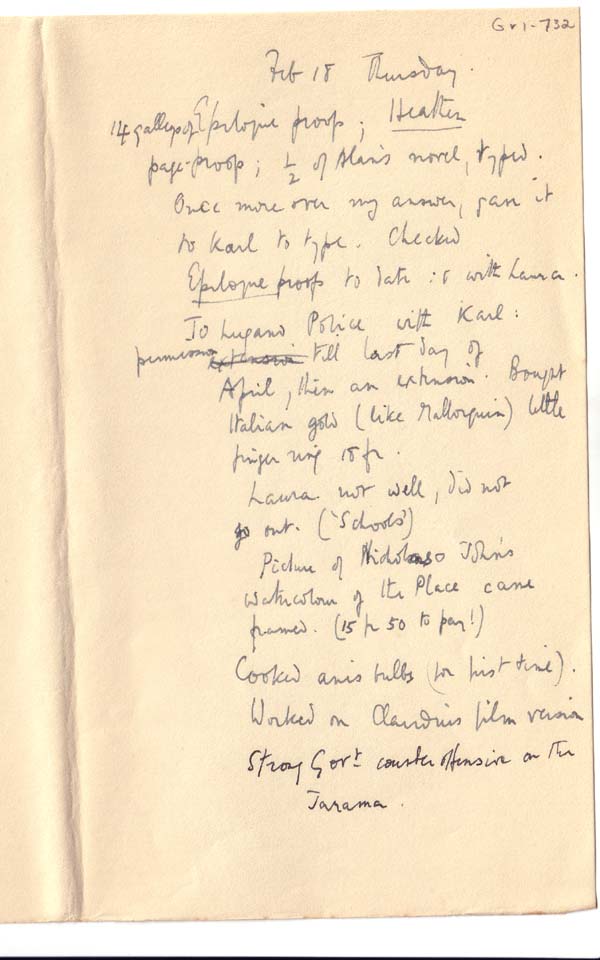 GV1-732
Feb 18 Thursday.
14 galleys of Epilogue proofs; Heathen
page-proof; ½ of Alan's novel, typed.
Once more over my answer, gave it
to Karl to type. Checked
Epilogue proofs to date :& with Laura.
To Lugano Police with Karl:
permission extension till last day of
April, then an extension. Bought
Italian gold (like Mallorquin) little
finger ring 18 fr.
Laura not well, did not
go out. ('Schools')
Picture of John's
watercolour of the Place came
framed. (15 fr 50 to pay!)
Cooked anis bulbs (for first time).
Worked on Claudius film version
Strong Govt counter offensive on the
Jarama.